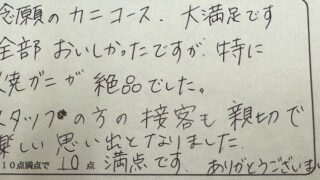 念願のカニコース、大満足です
全部おいしかったですが、特に
焼ガニが絶品でした。
スタッフの方の接客も親切で
楽しい思い出となりました。
10点満点で 10 点 満点です。ありがとうございま